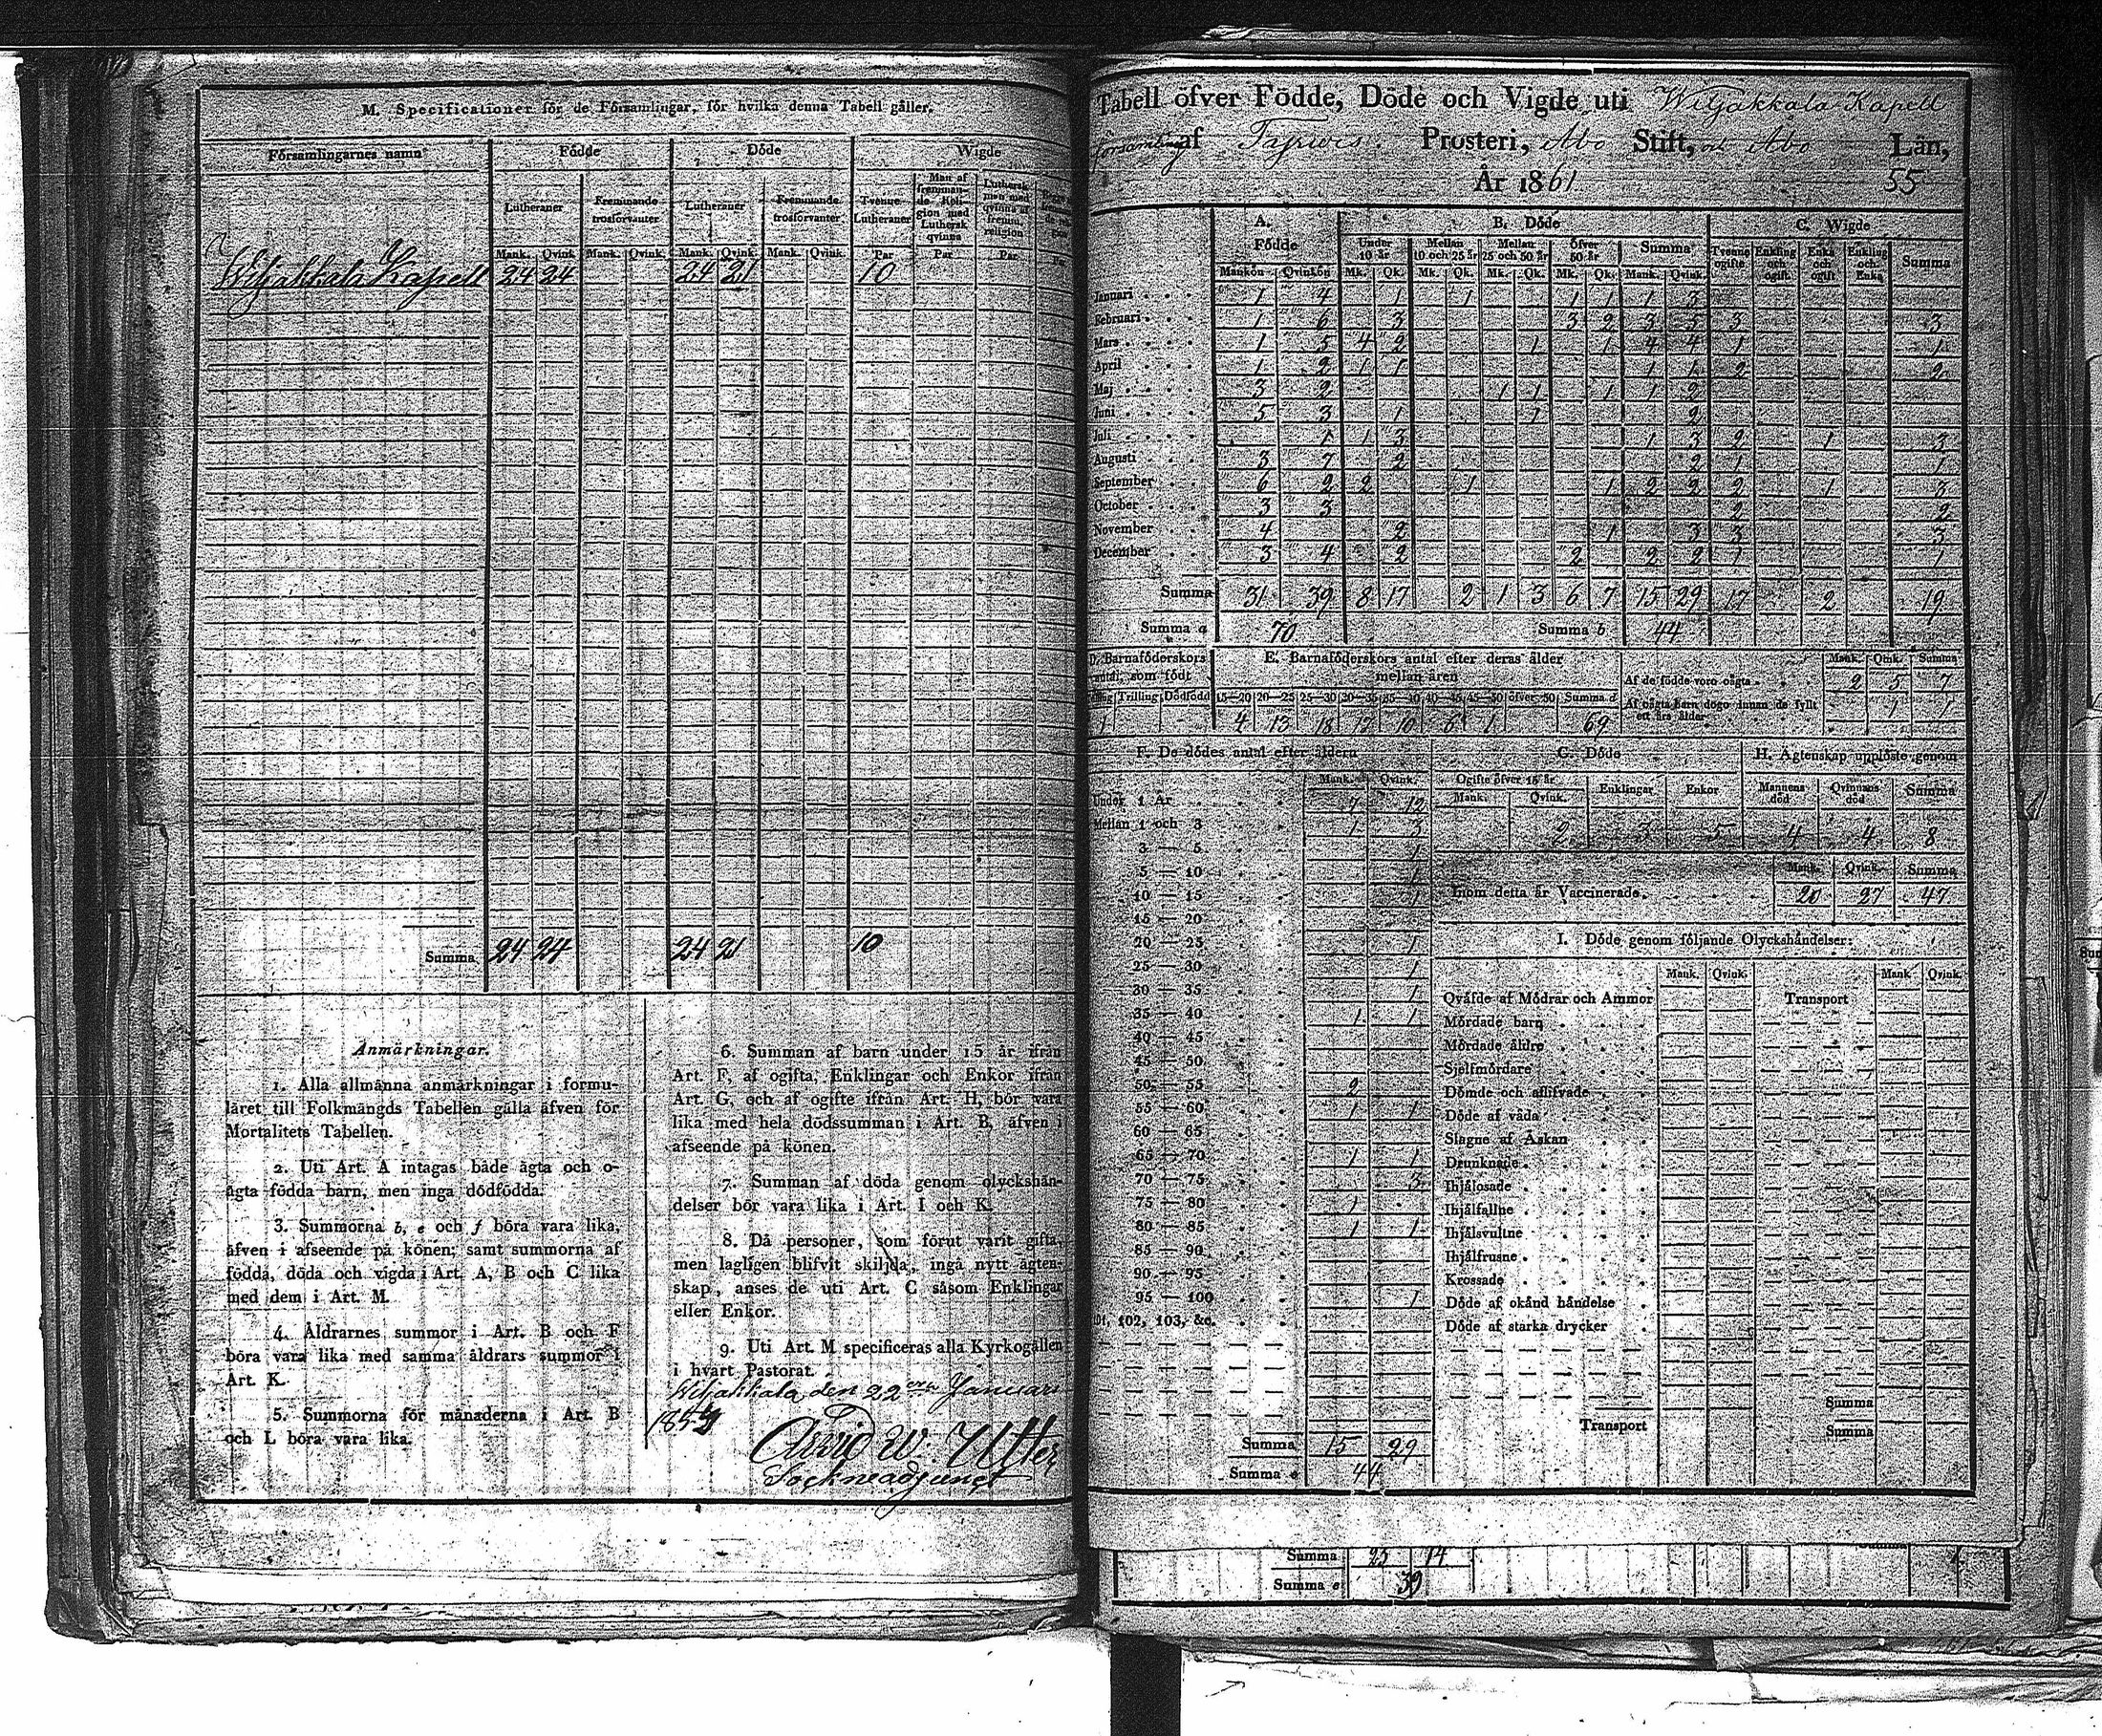 M. Specificationer för de Församlingar, för hvilka denna Tabell gäller.
Församlingarnes namn Födde Döde Wigde
Lutheraner Fremmande trosförvanter Lutheraner Fremmande trosförvanter Tvenne Lutheraner Man af fremmande Religion med Luthersk qvinna Luthersk man med qvinna af fremm. religion
Mank. Qvink. Mank. Qvink. Mank. Qvink. Mank. Qvink. Par Par Par
Wiljakkala Kapell 24 24 24 21 10
Summa 24 24 24 21 10
Anmärkningar.
1. Alla allmänna anmärkningar i formu-
läret till Folkmängds Tabellen gälla äfven för
Mortalitets Tabellen.
2. Uti Art. A intagas både ägta och o-
ägta födda barn, men inga dödfödda.
3. Summorna b, e och f böra vara lika,
äfven i afseende på könen; samt summorna af
födda, döda och vigda i Art. A, B och C lika
med dem i Art. M.
4. Åldrarnes summor i Art. B och F
böra vara lika med samma åldrars summor i
Art. K.
5. Summorna för månaderna i Art. B
och L böra vara lika.
6. Summan af barn under 15 år ifrån
Art. F, af ogifta, Enklingar och Enkor ifrån
Art. G, och af ogifte ifrån Art. H, bör vara
lika med hela dödssumman i Art. B, äfven i
afseende på könen.
7. Summan af döda genom olyckshän-
delser bör vara lika i Art. I och K.
8. Då personer, som förut varit gifta,
men lagligen blifvit skiljda, ingå nytt ägten-
skap, anses de uti Art. C såsom Enklingar
eller Enkor.
9. Uti Art. M specificeras alla Kyrkogällen
i hvart Pastorat.
Wiljakkala den 22 Januari
Arvid W. Utter
Sockneadjunct
Tabell öfver Födde, Döde och Vigde uti Wiljakkala Kapell
församling af Prosteri, Åbo Stift, och Åbo Län,
År 1861 55
A. Födde B. Döde C. Wigde
Under 10 år Mellan 10 och 25 år Mellan 25 och 50 år Öfver 50 år Summa Tvenne ogifte Enkling och ogift Enka och ogift Enkling och Enka Summa
Mankön Qvinkön Mk. Qk. Mk. Qk. Mk. Qk. Mk. Qk. Mank. Qvink.
Januari 1 4 1 1 1 1 1 3
Februari 1 6 3 3 2 3 5 3 3
Mars 1 5 4 2 1 1 4 4 1 1
April 1 2 1 1 1 1 2 2
Maj 3 2 1 1 1 1 2
Juni 5 3 1 1 2
Juli 1 1 3 1 3 2 1 3
Augusti 3 7 2 2 1 1
September 6 2 2 1 1 2 2 2 1 3
October 3 3 2 2
November 4 2 1 3 3 3
December 3 4 2 2 2 2 1 1
Summa 31 39 8 17 2 1 3 6 7 15 29 17 2 19
Summa a 70 Summa b 44
D. Barnaföderskors antal, som födt E. Barnaföderskors antal efter deras ålder mellan åren Mank. Qink. Summa
Trilling Dödfödd 15—20 20—25 25—30 30—35 35—40 40—45 45—50 öfver 50 Summa d
Af de födde voro oägta 2 5 7
Af oägta Barn dogo innan de fyllt ett års ålder 1 1
1 4 13 18 17 10 6 1 69
F. De dödes antal efter åldern G. Döde H. Ägtenskap upplöste genom
Mank. Qvink. Ogifte öfver 15 år Mank. Qvink. Enklingar Enkor Mannens död Qvinnans död Summa
2 3 5 4 4 8
Under 1 År 7 12
Mellan 1 och 3 1 3
3 — 5 1
5 — 10 1
10 — 15 1
15 — 20
20 — 25 1
25 — 30 1
30 — 35 1
35 — 40 1 1
40 — 45
45 — 50
50 — 55 2
55 — 60 1 1
60 — 65
65 — 70 1 1
70 — 75 3
75 — 80 1
80 — 85 1 1
85 — 90
90 — 95
95 — 100 1
101, 102, 103, &c.
Summa 15 29
Summa e 44
Mank. Qvink. Summa
Inom detta år Vaccinerade. 20 27 47
I. Döde genom följande Olyckshändelser:
Mank. Qvink. Mank. Qvink.
Qväfde af Mödrar och Ammor Transport
Mördade barn
Mördade äldre
Sjelfmördare
Dömde och aflifvade
Döde af våda
Slagne af Åskan
Drunknade
Ihjälosade
Ihjälfallne
Ihjälsvultne
Ihjälfrusne
Krossade
Döde af okänd händelse
Döde af starka drycker
Summa
Transport Summa
Summa 25 14
Summa e 39